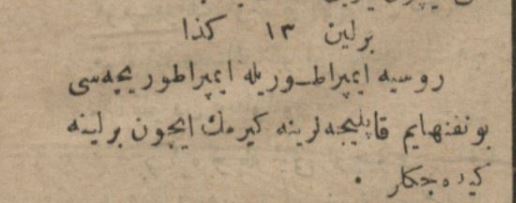 برلین ١٣ كذا
روسیه ایمپراطوریله ایمپراطوریچه‌سی
بونفنهایم قاپلیجه‌لرینه كیرمك ایچون برلینه
كیده‌جكلر .